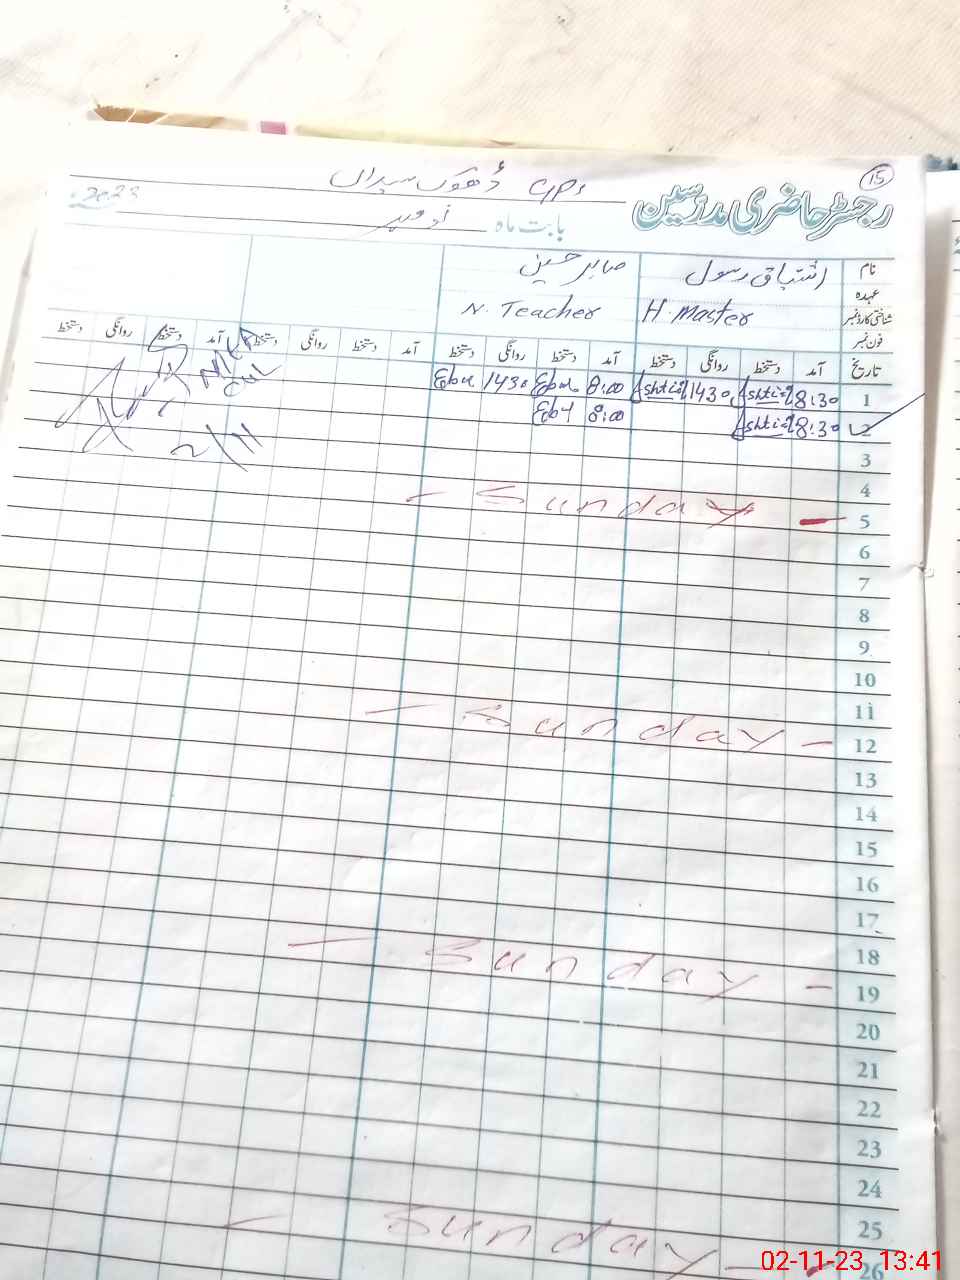 15
رجسٹر حاضری مدرسین
GPS ڈھوک سیداں
بابت ماہ نومبر 2023
نام اشتیاق رسول صابر حسین
عہدہ
شناختی کارڈ نمبر H. Master N. Teacher
فون نمبر
تاریخ آمد دستخط روانگی دستخط آمد دستخط روانگی دستخط آمد دستخط روانگی دستخط آمد دستخط روانگی دستخط
1 8:30 Ishtiaq 1430 Ishtiaq 8:00 1430
2 8:30 Ishtiaq 8:00
2/11
3
4
5 - Sunday -
6
7
8
9
10
11
12 - Sunday -
13
14
15
16
17
18
19 - Sunday -
20
21
22
23
24
25
26 - Sunday -
02-11-23, 13:41